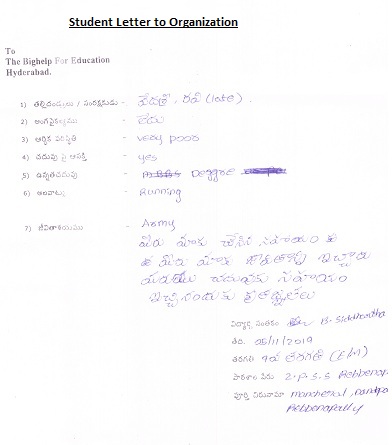 Student Letter to Organization
To
The Bighelp For Education
Hyderabad.
1) తల్లిదండ్రులు / సంరక్షకుడు - రవి (late).
2) అంగవైకల్యము - లేదు
3) ఆర్థిక పరిస్థితి - very poor
4) చదువు పై ఆసక్తి - yes
5) ఉన్నతచదువు - Deggree
6) అలవాట్లు - Running
7) జీవితాశయము - Army
మీరు మాకు చేసిన సహాయం కు
మీరు మాకు ఇచ్చారు
చదువుకు సహాయం
ఇచ్చినందుకు కృతజ్ఞతలు
విద్యార్థి సంతకం B-Siddhartha
తేది. 05/11/2019
తరగతి 9వ తరగతి (E/M)
పాఠశాల పేరు Z.P.S.S Rebbenap
పూర్తి చిరునామా Mancherial,
Rebbenapally